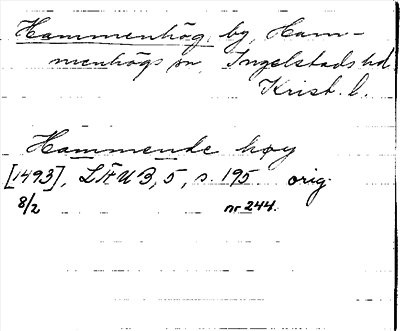 Hammenhög, by, Ham-
menhögs sn, Ingelstads hd
Krist. l.
Hammende høy
[1493], LÄUB, 5, s. 195 orig.
8/2 nr 244.